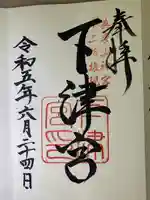 奉拝
下津宮
令和五年六月二十四日